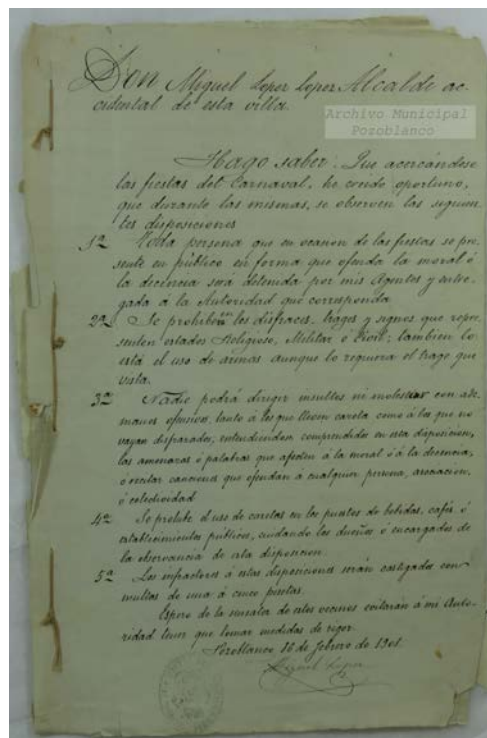 Don Miguel Lopez Lopez Alcalde ac-
cidental de esta villa.
Archivo Municipal
Pozoblanco
Hago saber: Que acercándose
las fiestas del Carnaval, he creido oportuno,
que durante las mismas, se observen las siguien-
tes disposiciones
1ª Toda persona que en ocasion de las fiestas se pre-
sente en público en forma que ofenda la moral ó
la decencia será detenida por mis Agentes y entre-
gada á la Autoridad que corresponda
2ª Se prohiben los disfraces, trages y signos que repre-
senten estados Religioso, Militar ó Civil; tambien lo
está el uso de armas aunque lo requiera el trage que
vista.
3ª Nadie podrá dirigir insultos ni molestar con ade-
manes ofensivos, tanto á los que lleven careta como á los que no
vayan disfrazados, entendiendose comprendidos en esta disposicion,
las amenazas ó palabras que afecten á la moral ó á la decencia,
ó recitar canciones que ofendan á cualquier persona, asociacion,
ó colectividad
4ª Se prohibe el uso de caretas en los puestos de bebidas, cafés ó
establecimientos publicos, cuidando los dueños ó encargados de
la observancia de esta disposicion.
5ª Los infractores á estas disposiciones serán castigados con
multas de una á cinco pesetas.
Espero de la sensatez de estos vecinos evitarán á mi Auto-
ridad tener que tomar medidas de rigor.
Pozoblanco 16 de febrero de 1901.
Miguel Lopez